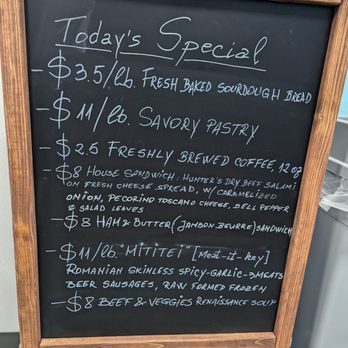 Today's Special
- $3.5/lb. FRESH BAKED SOURDOUGH BREAD
- $11/lb. SAVORY PASTRY
- $2.5 FRESHLY BREWED COFFEE, 12 oz
- $8 HOUSE SANDWICH: HUNTER'S DRY BEEF SALAMI
ON FRESH CHEESE SPREAD, W/ CARAMELIZED
ONION, PECORINO TOSCANO CHEESE, BELL PEPPER
& SALAD LEAVES
- $8 HAM & BUTTER (JANBON.BEURRE) SANDWICH
- $11/lb "MITITEI" [Meet-it-hey]
ROMANIAN SKINLESS SPICY-GARLIC-3MEATS
BEER SAUSAGES, RAW FORMED FROZEN
- $8 BEEF & VEGGIES RENAISSANCE SOUP